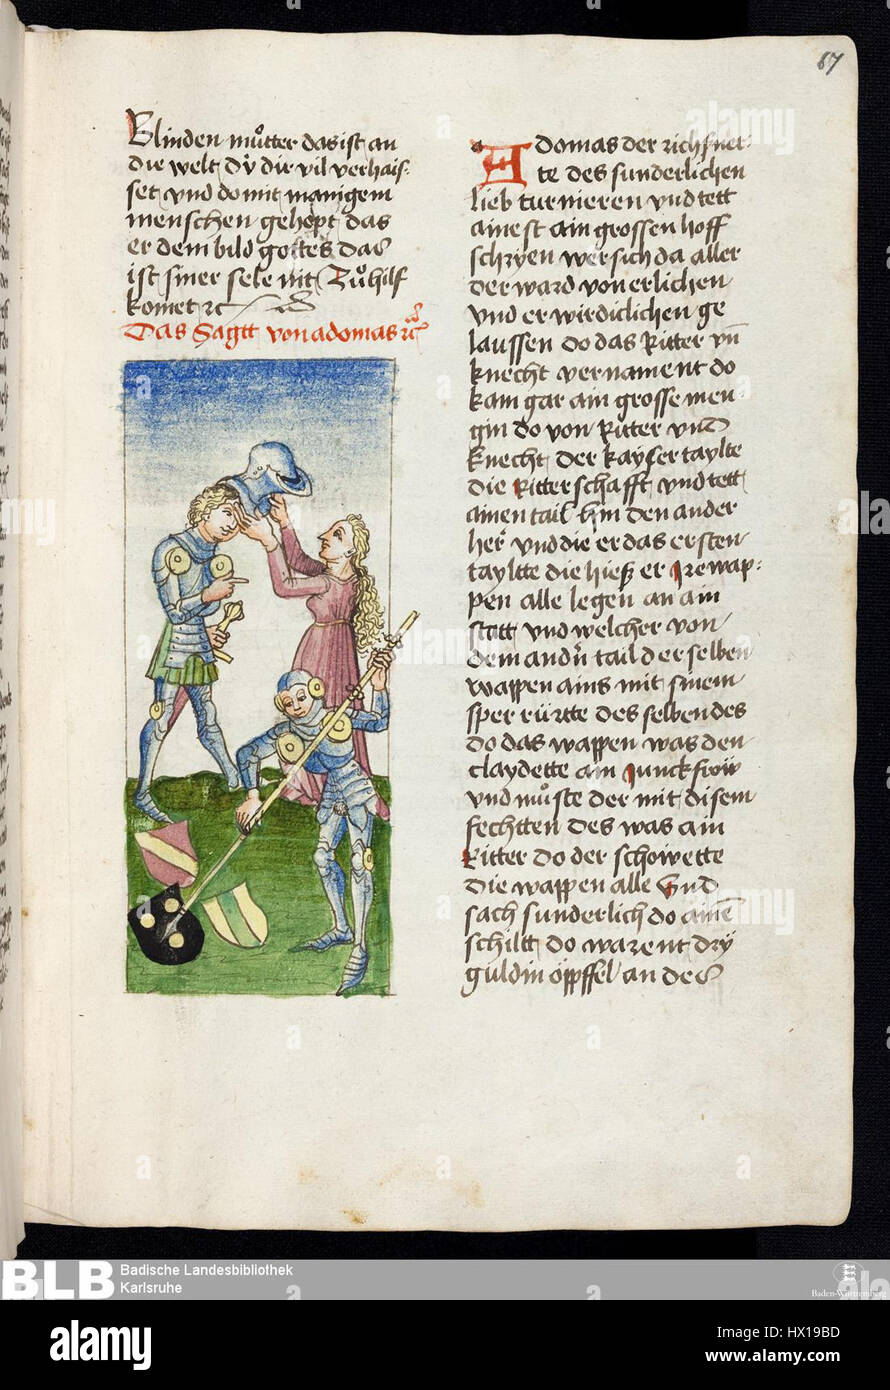 67
Blinden můtter das ist an
die welt Dÿ dir vil verhais-
set vnd do mit manigem
menschen gehept das
er dem bild gottes das
ist siner sele nit Zů hilf
komet rc
Das Sagtt von adomas rc
Adomas der rich het-
te des sunderlichen
lieb turnieren vnd tett
ainest ain grossen hoff
schryen wer sich da aller
der ward von erlichen
vnd er wirdiclichen ge
laussen do das Ritter vn̄
knecht vernament do
kam gar ain grosse men-
gin do von Ritter vnd
knecht der kayser taylte
die Ritterschafft vnd tett
ainen tail hin den ander
her vnd die er das ersten
taylte die hiesß er Ire wap-
pen alle legen an ain
statt vnd welcher von
dem andn̄ tail der selben
wappen ains mit sinem
sper rürtte des selben des
do das wappen was den
claydette ain Junckfröw
vnd můste der mit disem
fechtten des was ain
Ritter do der schowette
die wappen alle Vnd
sach sunderlich do ainē
schiltt do warent dry
guldin öppffel an des
BLB
Badische Landesbibliothek
Karlsruhe
Baden-Württemberg
alamy
Image ID: HX19BD
www.alamy.com